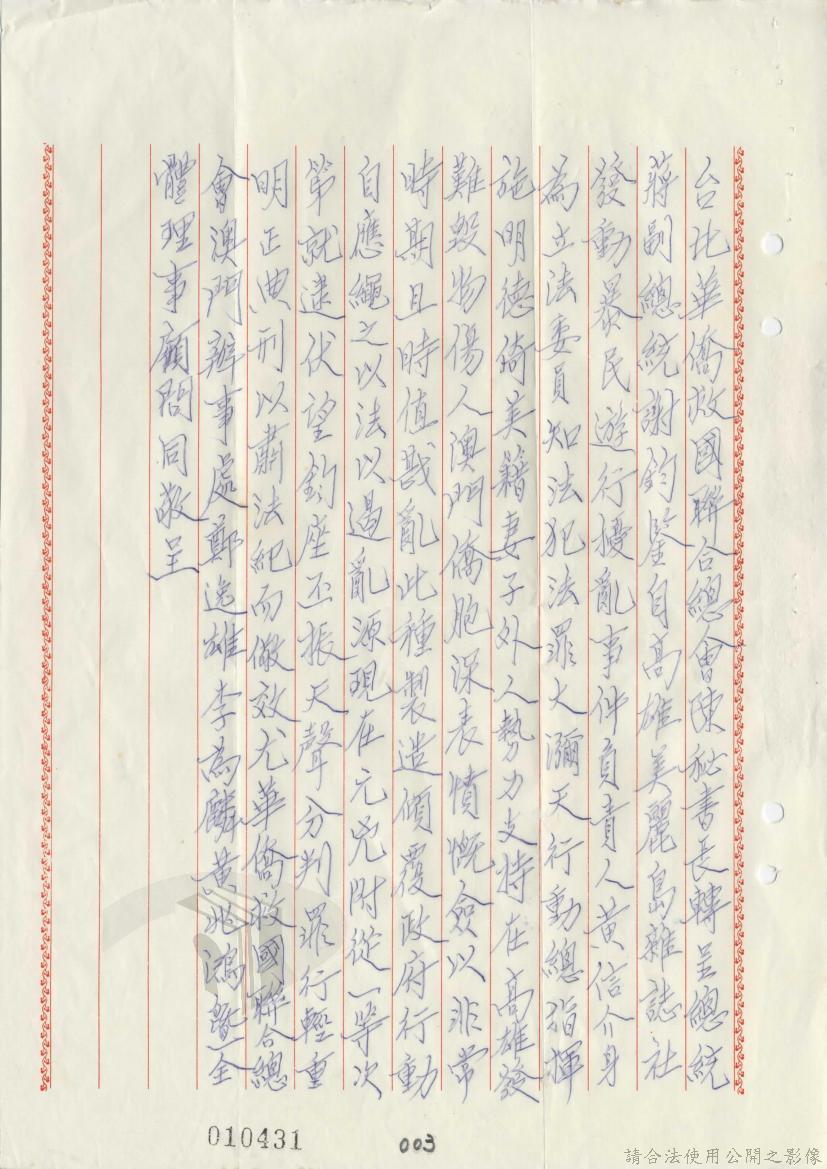 台北華僑救國聯合總會陳秘書長轉呈總統
蔣副總統謝鈞鑒自高雄美麗島雜誌社
發動暴民遊行擾亂事件負責人黃信介身
為立法委員知法犯法罪大瀰天行動總指揮
施明德倚美籍妻子外人勢力支持在高雄發
難毀物傷人澳門僑胞深表憤慨僉以非常
時期且時值戡亂此種製造傾覆政府行動
自應繩之以法以遏亂源現在元兇附從一等次
第就逮伏望鈞座丕振天聲分判罪行輕重
明正典刑以肅法紀而儆效尤華僑救國聯合總
會澳門辦事處鄭逸雄李為麟黃兆鴻暨全
體理事顧問同敬呈
010431
003
請合法使用公開之影像